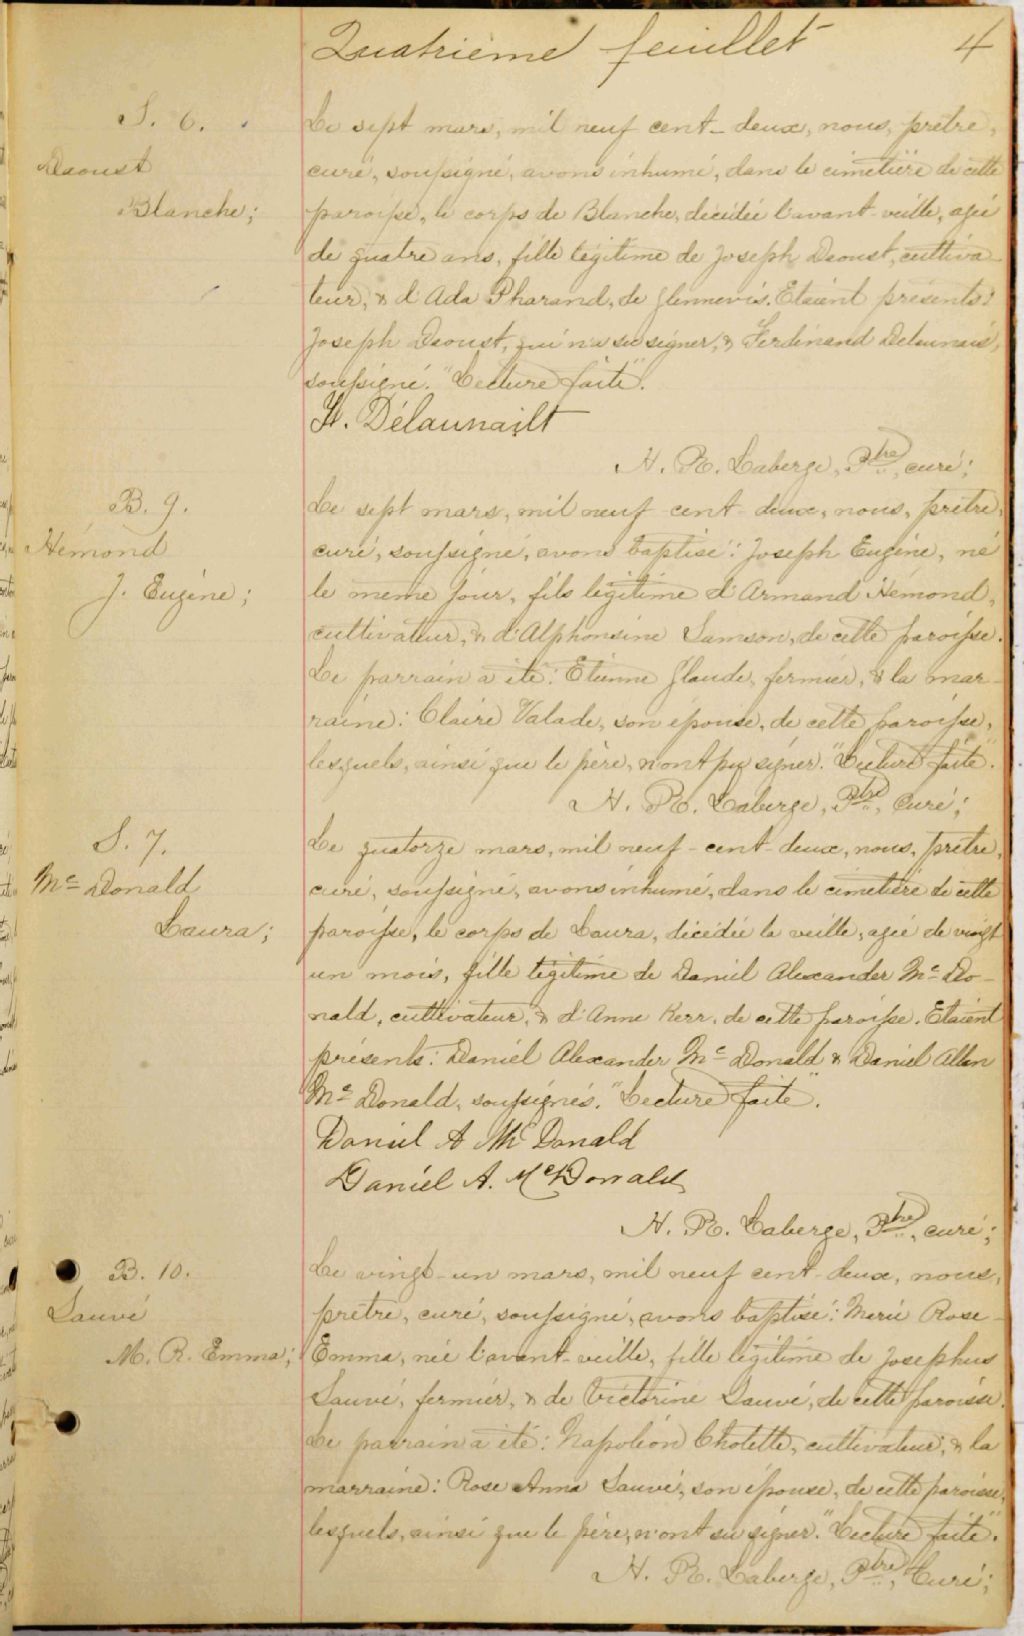 Quatrième feuillet 4
S. 6.
Daoust
Blanche;
Le sept mars, mil neuf cent-deux, nous, prêtre,
curé, soussigné, avons inhumé, dans le cimetière de cette
paroisse, le corps de Blanche, décédée l'avant-veille, agée
de quatre ans, fille légitime de Joseph Daoust, cultiva-
teur, & d'Ada Pharand, de Glennevis. Etaient présents:
Joseph Daoust, qui n'a su signer, & Ferdinand Delaunais,
soussigné. "Lecture faite".
Délaunailt
H. R. Laberge, Ptre, curé;
B. 9.
Hémond
J. Eugène;
Le sept mars, mil neuf cent-deux, nous, prêtre,
curé, soussigné, avons baptisé: Joseph Eugène, né
le même jour, fils légitime d'Armand Hémond,
cultivateur, & d'Alphonsine Samson, de cette paroisse.
Le parrain a été: Etienne Glaude, fermier, & la mar-
raine: Claire Valade, son épouse, de cette paroisse,
lesquels, ainsi que le père, n'ont pu signer. "Lecture faite".
H. R. Laberge, Ptre, Curé;
S. 7.
Mc Donald
Laura;
Le quatorze mars, mil neuf-cent-deux, nous, prêtre,
curé, soussigné, avons inhumé, dans le cimetière de cette
paroisse, le corps de Laura, décédée la veille, agée de vingt
un mois, fille légitime de Daniel Alexander Mc Do-
nald, cultivateur, & d'Anne Kerr, de cette paroisse. Etaient
présents: Daniel Alexander Mc Donald & Daniel Allan
Mc Donald, soussignés. "Lecture faite".
Daniel A McDonald
Daniel A. McDonald
H. R. Laberge, Ptre, curé;
B. 10.
Sauvé
M. R. Emma;
Le vingt-un mars, mil neuf cent-deux, nous,
prêtre, curé, soussigné, avons baptisé: Marie Rose-
Emma, née l'avant-veille, fille légitime de Josephus
Sauvé, fermier, & de Victorine Sauvé, de cette paroisse.
Le parrain a été: Napoléon Cholette, cultivateur, & la
marraine: Rose Anna Sauvé, son épouse, de cette paroisse,
lesquels, ainsi que le père, n'ont su signer. "Lecture faite".
H. R. Laberge, Ptre, Curé;